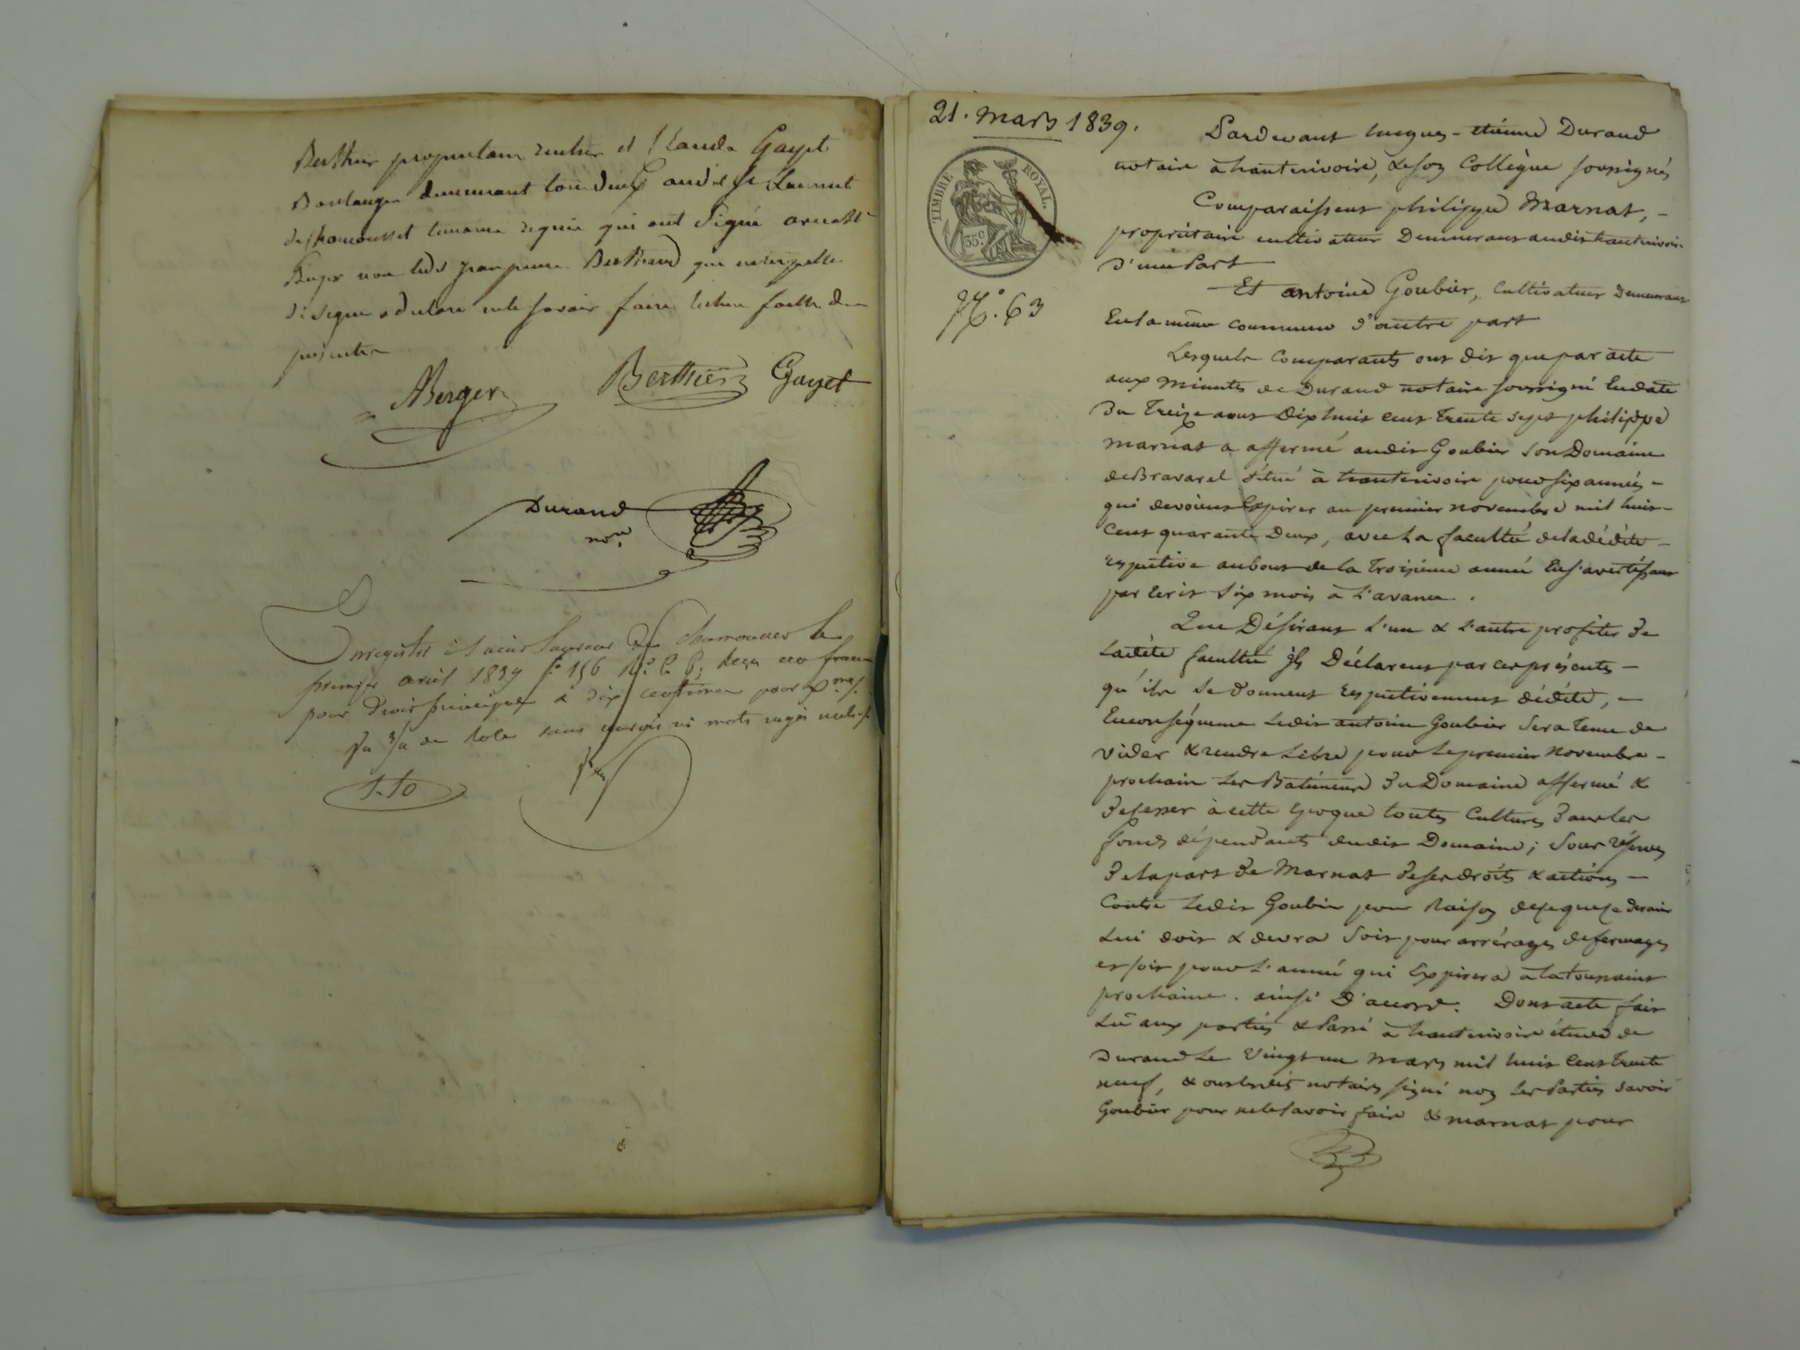 Berthier propriétaire rentier et Claude Gayet
Boulanger demeurant tous deux audit St Laurent
de chamousset témoins requis qui ont signé avec M.
Berger non ledit Jean pierre Berthier qui interpellé
de signer a déclaré ne le savoir faire lecture faite des
présentes
ABerger Berthier Gayet
Durand
nore
Enregistré à Saint Laurent de Chamousset le
premier avril 1839 fo 156 Ro C. 6, reçu francs
pour droit principal & dix centimes pour xmes.
sans ni mots rayés nuls
1-10
21. Mars 1839.
TIMBRE ROYAL.
35c
No. 63
Pardevant Jacques-étienne Durand
notaire à hauterivoire, & son Collègue soussignés
Comparaissent philippe Marnat, -
propriétaire cultivateur Demeurant audit hauterivoire
D'une Part
Et antoine Goubier, cultivateur Demeurant
En la même commune d'autre part
Lesquels comparants ont dit que par acte
aux minutes de Durand notaire soussigné En date
du Treize aout Dix huit cent trente sept philippe
Marnat a affermé audit Goubier son Domaine
de Bravarel situé à hauterivoire pour six années -
qui devoient Expirer au premier novembre mil huit -
Cent quarante Deux, avec la faculté de la dédite -
respective au bout de la troisième année En s'avertissant
par écrit six mois à l'avance.
Que Désirant l'un & l'autre profiter de
Ladite faculté ils Déclarent par ces présentes -
qu'ils se donnent respectivement dédite, -
En conséquence ledit antoine Goubier sera tenu de
vider & rendre Libre pour le premier novembre -
prochain les Batiments du Domaine affermé &
de cesser à cette époque toutes Cultures dans les
fonds dépendants dudit Domaine; sous réserves
de la part de Marnat de ses droits & actions -
Contre ledit Goubier pour Raison de ce que ce dernier
Lui doit & devra soit pour arrérages de fermages
et soit pour l'année qui Expirera à la toussaint
prochaine. ainsi D'accord. Dont acte fait
Lu aux parties & Passé à hauterivoire étude de
Durand Le Vingt un Mars mil huit Cent trente
neuf, & ont lesdits notaires signé non les Parties savoir
Goubier pour ne le savoir faire & Marnat pour